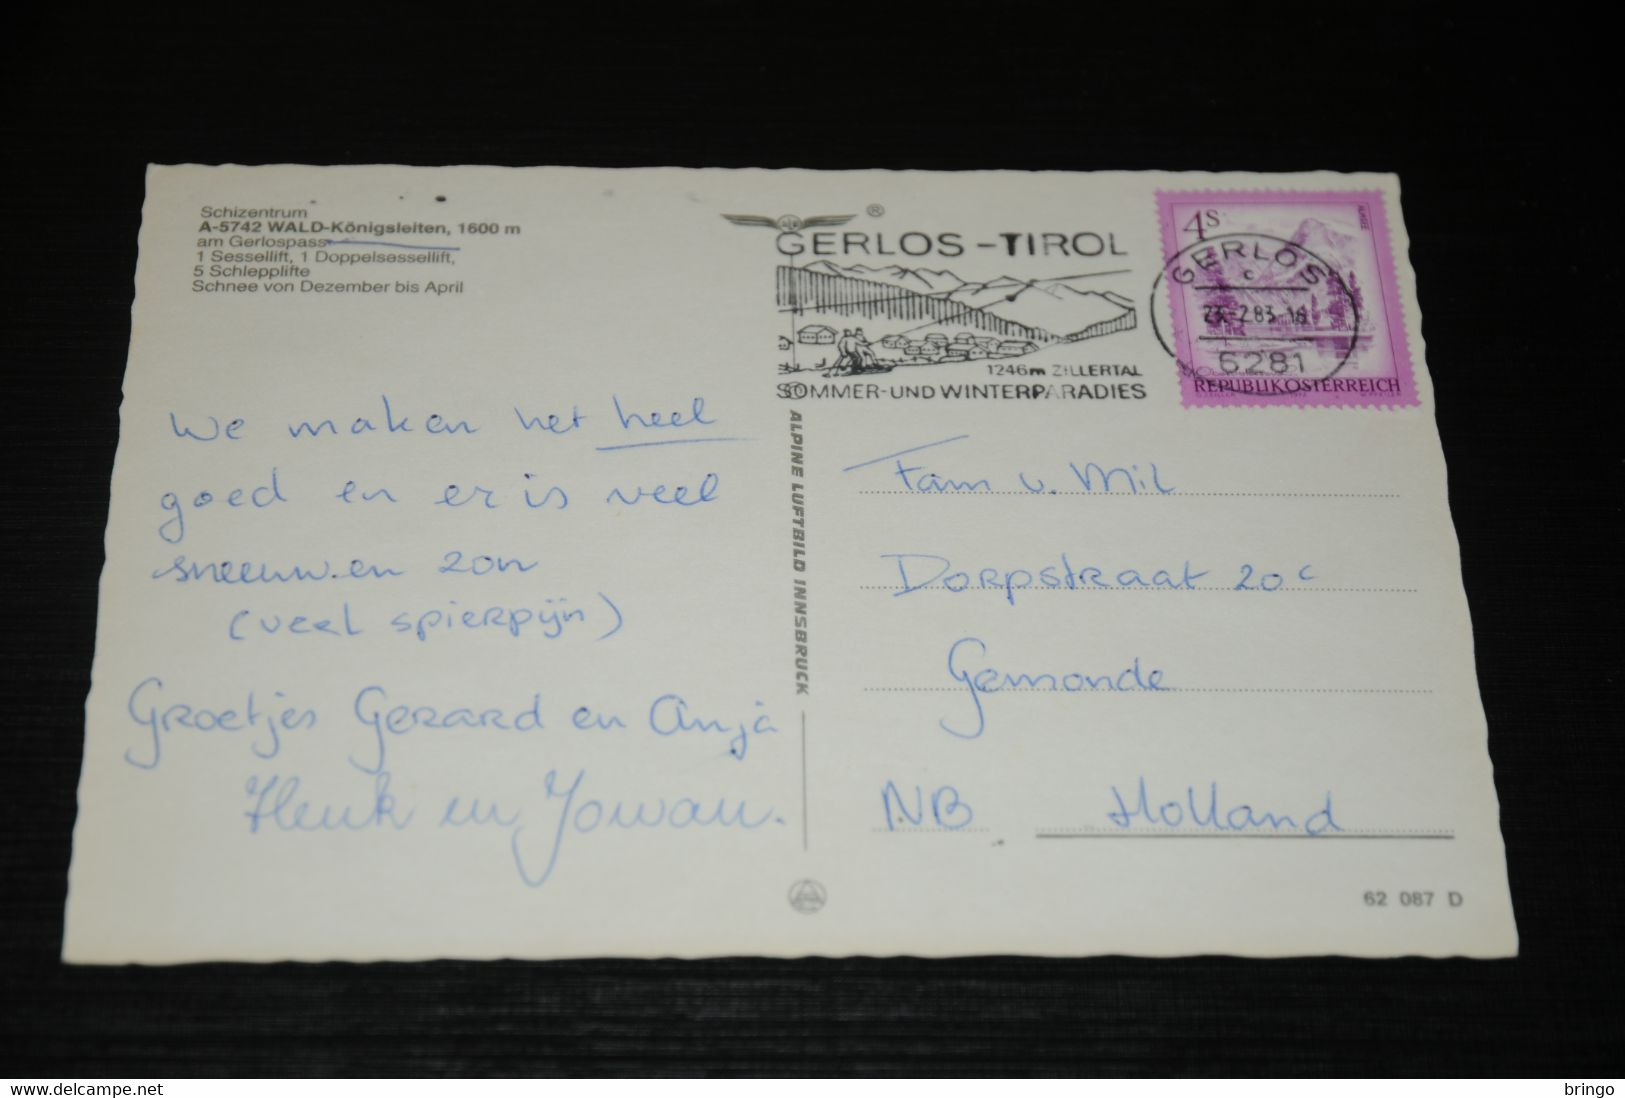 Schizentrum
A-5742 WALD-Königsleiten, 1600 m
am Gerlospass
1 Sessellift, 1 Doppelsessellift,
5 Schlepplifte
Schnee von Dezember bis April
®
GERLOS-TIROL
1246m ZILLERTAL
SOMMER-UND WINTERPARADIES
4S
ALMSEE
GERLOS
c
23.-2.83-18
6281
REPUBLIK ÖSTERREICH
ALPINE LUFTBILD INNSBRUCK
We maken het heel
goed en er is veel
sneeuw en zon
(veel spierpijn)
Groetjes Gerard en Anja
Henk en Jowan.
Fam v. Mil
Dorpstraat 20c
Gemonde
NB Holland
62 087 D
bringo